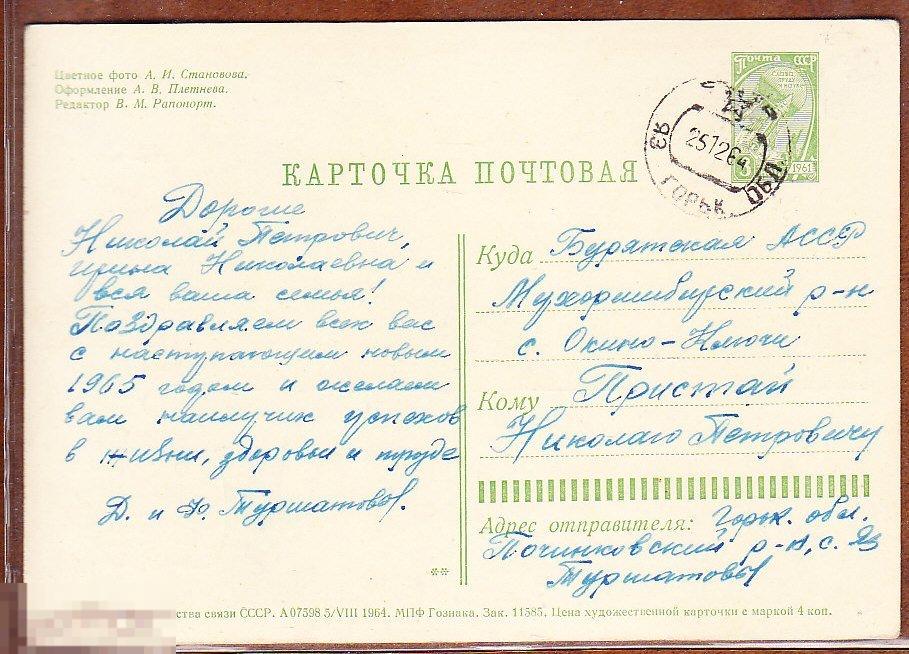 Цветное фото А. И. Становова.
Оформление А. В. Плетнева.
Редактор В. М. Рапопорт.
Почта СССР
1961
25 12 64
ГОРЬК. ОБЛ.
КАРТОЧКА ПОЧТОВАЯ
Дорогие
Николай Петрович,
Ирина Николаевна и
вся ваша семья!
Поздравляем всех вас
с наступающим новым
1965 годом и желаем
вам наилучших успехов
в жизни, здоровьи и труде
Д. и Ф. Туршатовы.
**
Куда Бурятская АССР
Мухоршибирский р-н
с. Окино-Ключи
Кому Пристай
Николаю Петровичу
Адрес отправителя: Горьк. обл.
Починковский р-н, с. Яз
Туршатовы
ства связи СССР. А 07598 5/VIII 1964. МПФ Гознака. Зак. 11585. Цена художественной карточки с маркой 4 коп.